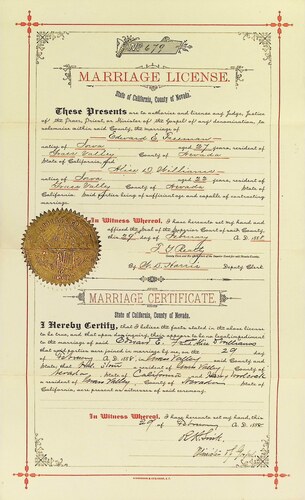 No 679
MARRIAGE LICENSE.
State of California, County of Nevada.
These Presents are to authorize and license any Judge, Justice
of the Peace, Priest, or Minister of the Gospel of any denomination, to
solemnize within said County, the marriage of
Edward C. Freeman
native of Iowa aged 27 years, resident of
Grass Valley County of Nevada
State of California, and
Alice D. Williams
native of Iowa aged 22 years, resident of
Grass Valley, County of Nevada State of
California. Said parties being of sufficient age and capable of contracting
marriage.
In Witness Whereof, I have hereunto set my hand and
affixed the Seal of the Superior Court of said County,
this 29 day of February A. D. 188
By Deputy Clerk
MARRIAGE CERTIFICATE.
State of California, County of Nevada.
I Hereby Certify, that I believe the facts stated in the above license
to be true, and that upon due inquiry, there appears to be no impediment
to the marriage of said Edward C. Williams
that said parties were joined in marriage by me, on the 29
day of February A. D. 188 in Grass Valley County and
State; that a resident of Grass Valley, County of
Nevada, State of California and
a resident of Grass Valley, County of Nevada State of
California, are present as witnesses of said ceremony.
In Witness Whereof, I have hereunto set my hand, this
29 day of February A. D. 188